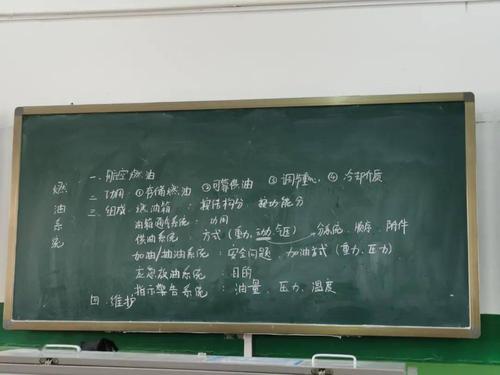 燃油系统
一、航空燃油
二、功用 ①存储燃油 ②可靠供油 ③调节重心 ④冷却介质
三、组成 燃油箱：按结构分 按功能分
油箱通气系统：功用
供油系统 方式(重力、动力、气压) 分系统、顺序、附件
加油/抽油系统：安全问题、加油方式(重力、压力)
应急放油系统：目的
指示警告系统：油量、压力、温度
四、维护